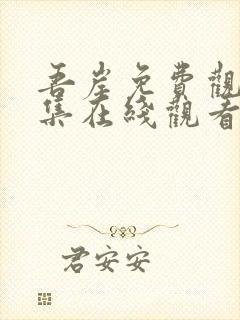 吾岸免費觀
集在綫觀看
君安安